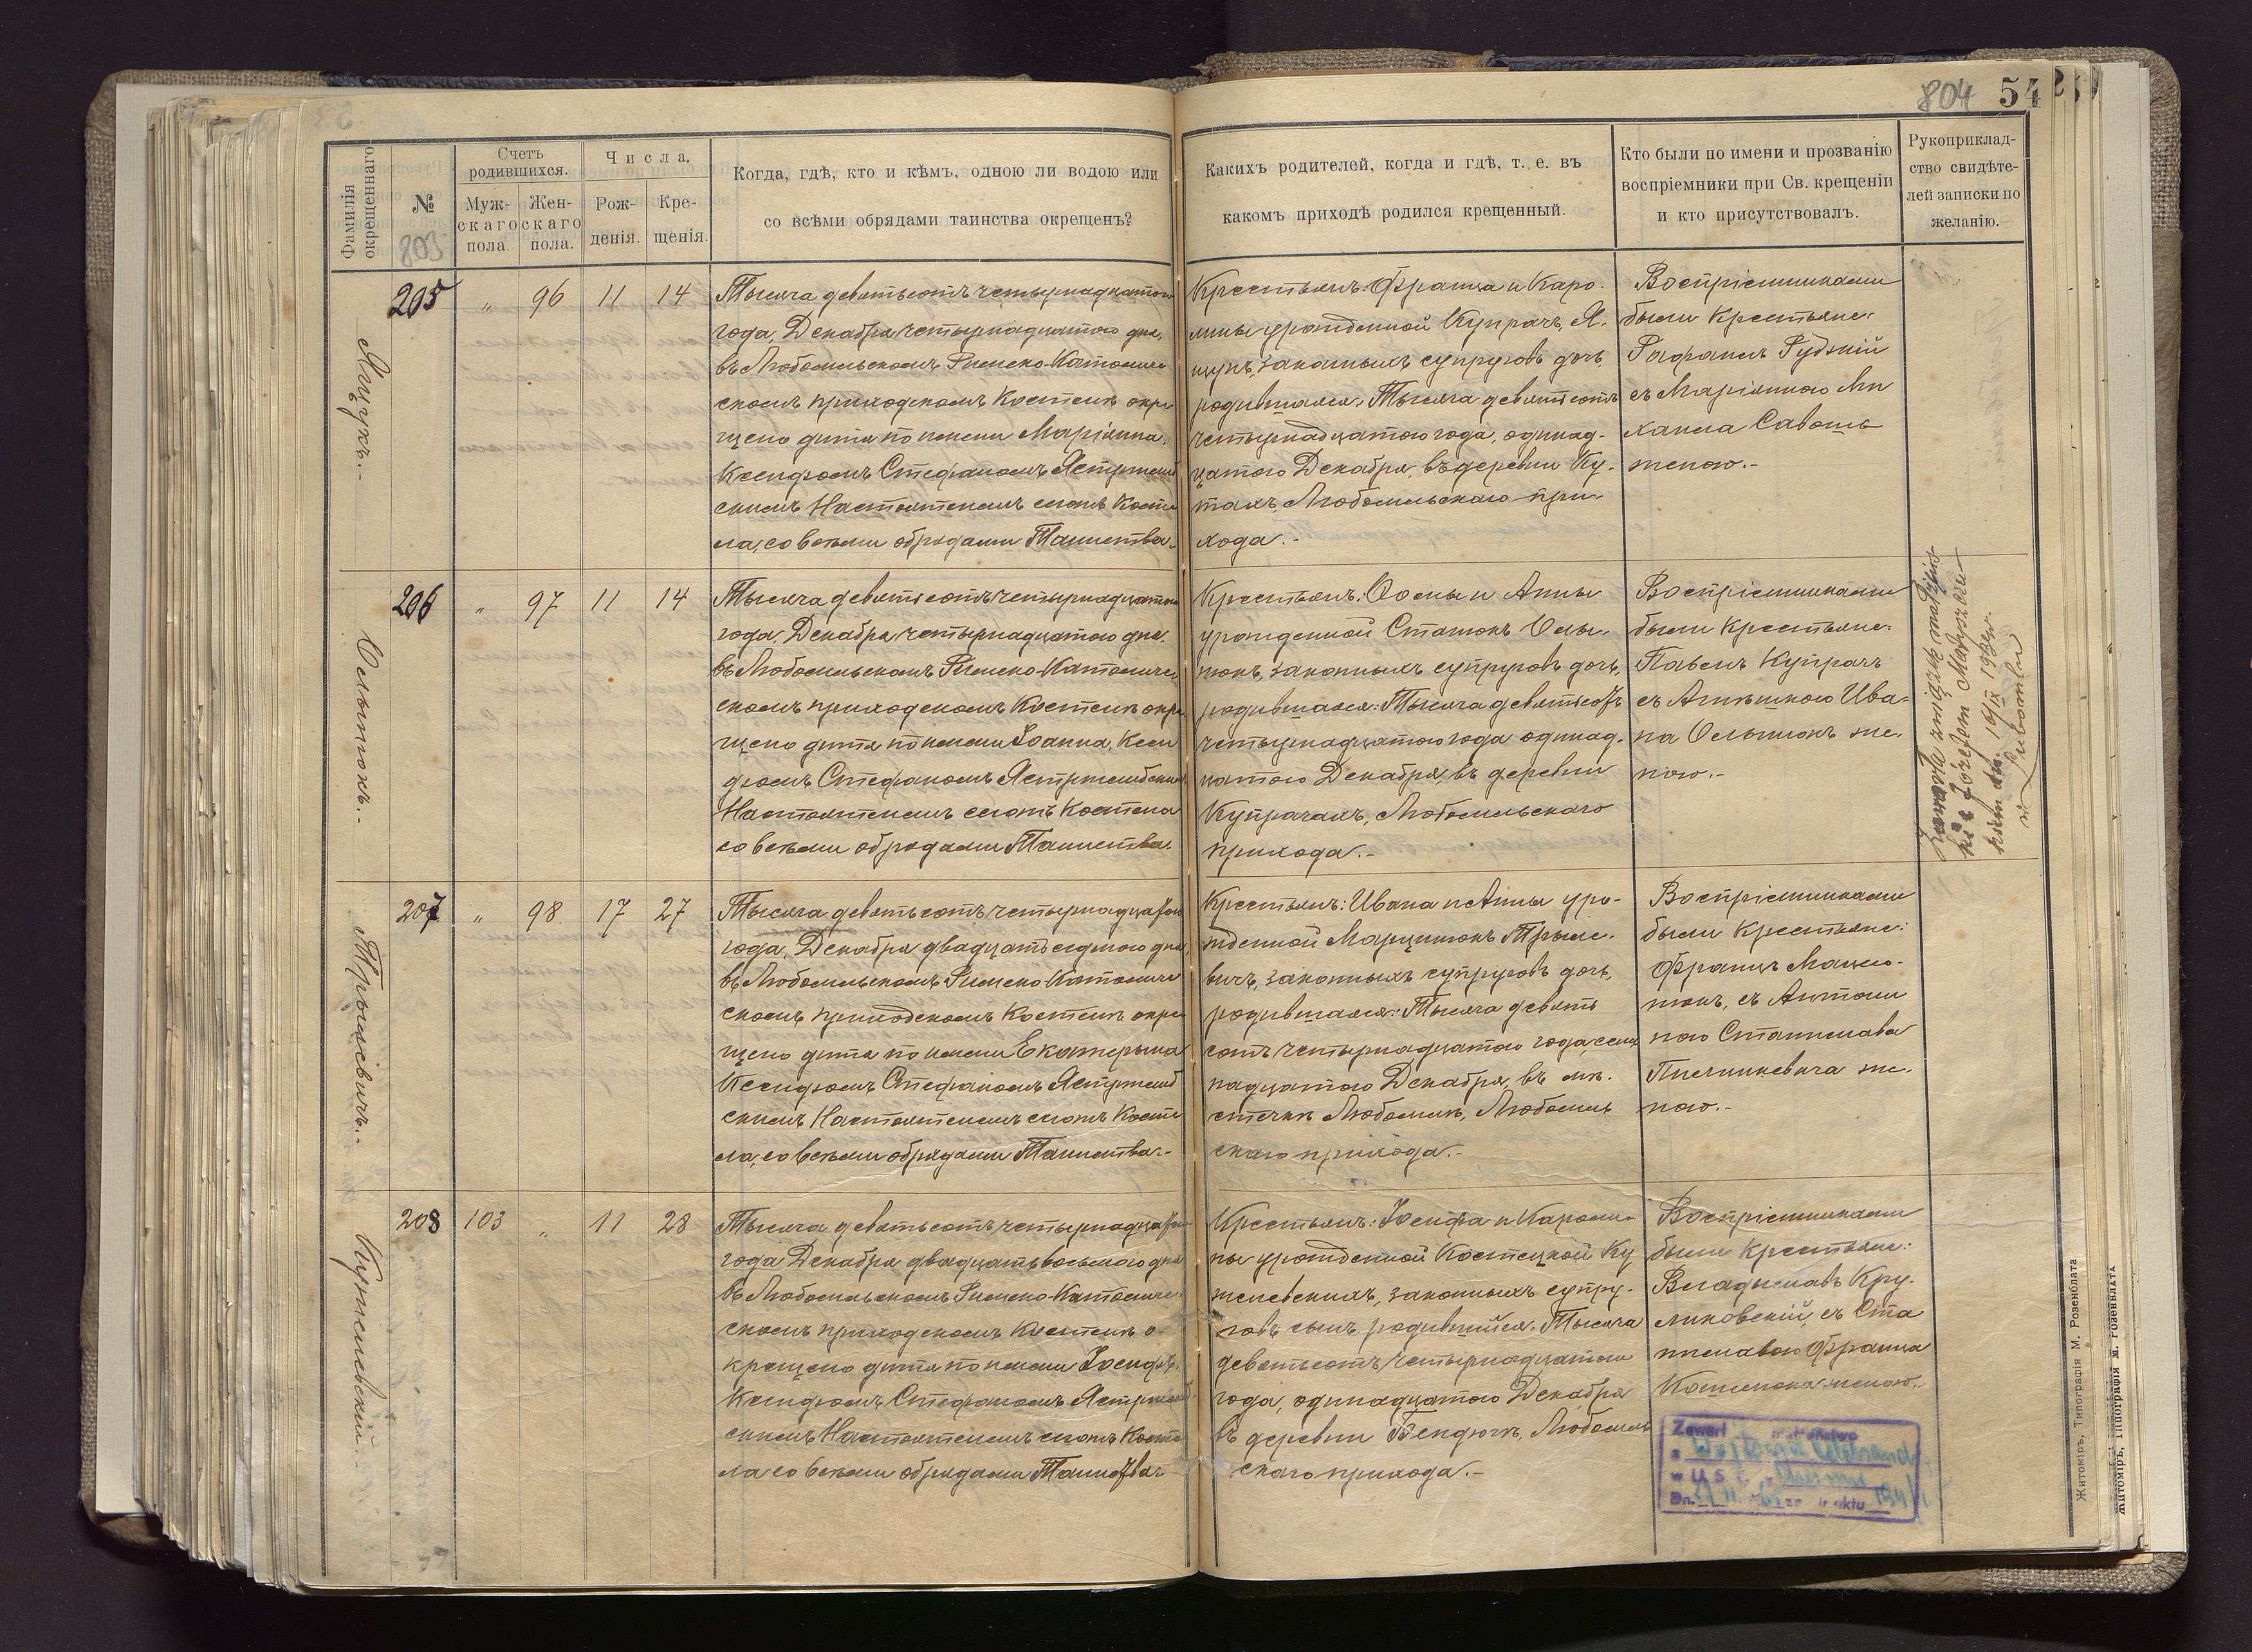 804 54
Фамилія окрещеннаго
№
803
Счетъ родившихся.
Муж-
скаго
пола.
Жен-
скаго
пола.
Числа.
Рож-
денія.
Кре-
щенія.
Когда, гдѣ, кто и кѣмъ, одною ли водою или
со всѣми обрядами таинства окрещенъ?
Каких​ъ родителей, когда и гдѣ, т. е. въ
какомъ приходѣ родился крещенный.
Кто были по имени и прозванію
воспріемники при Св. крещеніи
и кто присутствовалъ.
Рукоприклад-
ство свидѣте-
лей записки по
желанію.
Ящукъ.
205 " 96 11 14
Тысяча девятьсотъ четырнадцатого
года, Декабря четырнадцатого дня,
въ Любомльскомъ Римско-Католиче
скомъ приходскомъ Костелѣ окре
щено дитя по имени Маріанна,
Ксендзомъ Стефаномъ Ястржемб
скимъ Настоятелемъ сего Косте
ла, со всѣми обрядами Таинства.
Крестьянъ: Франца и Каро-
лины урожденной Купрачъ, Я-
щукъ, законныхъ супруговъ дочь,
родившаяся: Тысяча девятьсотъ
четырнадцатого года, одинад-
цатого Декабря, въ деревни Ку-
тахъ Любомльскаго при-
хода.-
Воспріемниками
были Крестьяне:
Рафаилъ Рудзкій
съ Маріянною Ми
хаила Савошъ
женою.-
Ольытюкъ.
206 " 97 11 14
Тысяча девятьсотъ четырнадцатого
года, Декабря четырнадцатого дня,
въ Любомльскомъ Римско-Католиче
скомъ приходскомъ Костелѣ окре
щено дитя по имени Іоанна, Ксен
дзомъ Стефаномъ Ястржембскимъ
Настоятелемъ сего Костела
со всѣми обрядами Таинства.
Крестьянъ: Фомы и Анны
урожденной
законныхъ супруговъ дочь,
родившаяся: Тысяча девятьсотъ
четырнадцатого года одинад-
цатого Декабря, въ деревни
Купрачахъ, Любомльскаго
прихода.-
Воспріемниками
были Крестьяне:
Павелъ Купрачъ
съ Агнѣшкою Ива-
на же-
ною.-
Zawarła związek małżeńs-
ki z Józefem
dn. 16/IX 193
w Lubomlu
207 " 98. 17 27
Тысяча девятьсотъ четырнадцатого
года, Декабря двадцать седмого дня,
въ Любомльскомъ Римско-Католиче
скомъ приходскомъ Костелѣ окре
щено дитя по имени Екатерына
Ксендзомъ Стефаномъ Ястржемб
скимъ Настоятелемъ сего Косте
ла, со всѣми обрядами Таинства.-
Крестьянъ: Ивана и Анны уро-
жденной Марцинюкъ
законныхъ супруговъ дочь,
родившаяся: Тысяча девять
сотъ четырнадцатого года, сем
надцатого Декабря, въ мѣ-
стечкѣ Любомлѣ, Любомль
скаго прихода.-
Воспріемниками
были Крестьяне:
Францъ
съ Антони
ною Станислава
же-
ною.-
208 103 " 11 28
Тысяча девятьсотъ четырнадцатого
года Декабря двадцать восьмого дня
въ Любомльскомъ Римско-Католиче
скомъ приходскомъ Костелѣ о-
крещено дитя по имени Іосифъ.
Ксендзомъ Стефаномъ Ястржемб
скимъ Настоятелемъ сего Косте
ла со всѣми обрядами Таинства
Крестьянъ: Іосифа и Кароли-
ны урожденной Костецкой Ку
законныхъ супру-
говъ сынъ, родившійся: Тысяча
девятьсотъ четырнадцатого
года, одинадцатого Декабря
въ деревни Бендюгѣ, Любомль
скаго прихода.-
Воспріемниками
были Крестьяне:
Владыславъ Кру-
ликовскій, съ Ста
ниславою Франца
женою.
Zawarł małżeństwo
z
w U.S.C.
Dn. aktu
Житоміръ, Типографія М. Розенблата
Житоміръ, Типографія М. Розенблата